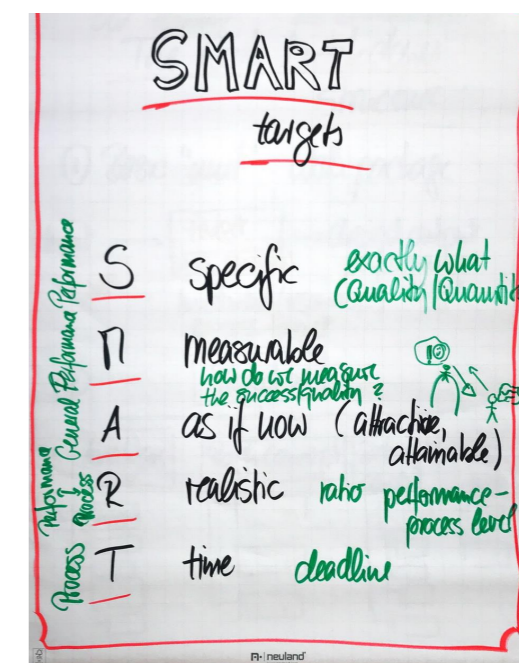 SMART
targets
S specific exactly what
(Quality/Quantit
M measurable
how do we measure
the success/quality?
A as if now (attractive,
attainable)
R realistic ratio performance-
process level
T time deadline
Performance
General Performance
Performance
Process
Process
neuland